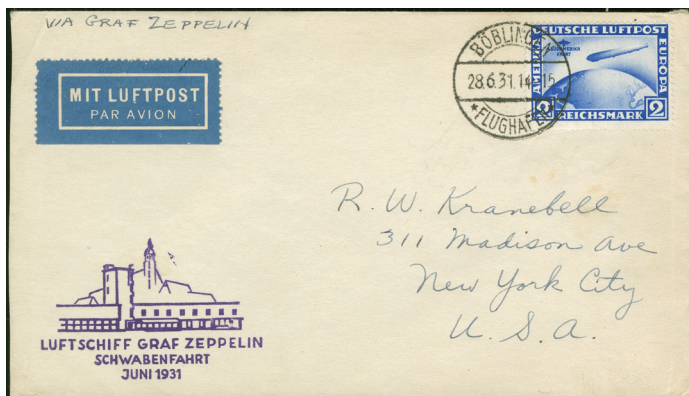 VIA GRAF ZEPPELIN
MIT LUFTPOST
PAR AVION
BÖBLINGEN
28.6.31.14-15
*FLUGHAFEN*
DEUTSCHE LUFTPOST
AMERIKA
EUROPA
2 REICHSMARK 2
R. W. Kranebell
311 Madison Ave
New York City
U. S. A.
LUFTSCHIFF GRAF ZEPPELIN
SCHWABENFAHRT
JUNI 1931